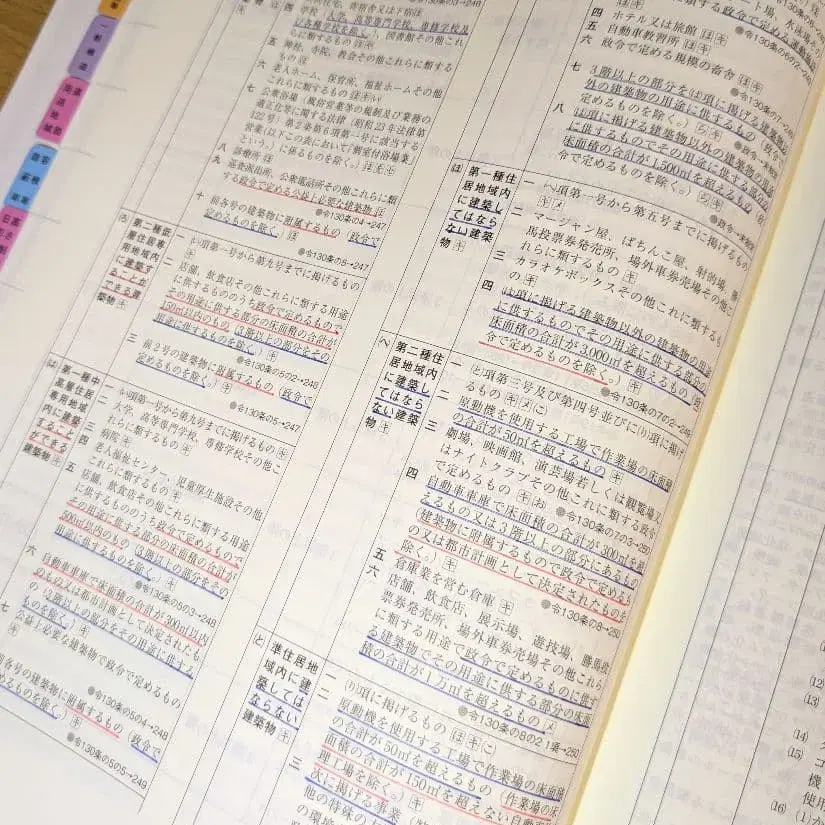 住宅、寄宿舎又は下宿ほ
四 学校（大学、高等専門学校、専修学校及
び各種学校を除く。）、図書館その他これら
に類するもの
五 神社、寺院、教会その他これらに類する
もの
六 老人ホーム、保育所、福祉ホームその他
これらに類するもの
七 公衆浴場（風俗営業等の規制及び業務の
適正化等に関する法律（昭和23年法律第
122号）第2条第6項第一号に該当する
営業（以下この表において「個室付浴場業」
という。）に係るものを除く。）
八 診療所
九 巡査派出所、公衆電話所その他これらに類
する政令で定める公益上必要な建築物
●令130条の4→247
十 前各号の建築物に附属するもの（政令で
定めるものを除く。）
●令130条の5→247
(ろ)
第二種低
層住居専
用地域内
に建築す
ることが
できる建
築物
一 (い)項第一号から第九号までに掲げるもの
二 店舗、飲食店その他これらに類する用途
に供するもののうち政令で定めるもので
その用途に供する部分の床面積の合計が
150㎡以内のもの（3階以上の部分をその
用途に供するものを除く。）
●令130条の5の2→248
三 前2号の建築物に附属するもの（政令で
定めるものを除く。）
●令130条の5→247
(は)
第一種中
高層住居
専用地域
内に建築
すること
ができる
建築物
一 (い)項第一号から第九号までに掲げるもの
二 大学、高等専門学校、専修学校その他こ
れらに類するもの
三 病院
四 老人福祉センター、児童厚生施設その他
これらに類するもの
五 店舗、飲食店その他これらに類する用途
に供するもののうち政令で定めるもので
その用途に供する部分の床面積の合計が
500㎡以内のもの（3階以上の部分をその
用途に供するものを除く。）
●令130条の5の3→248
六 自動車車庫で床面積の合計が300㎡以内
のもの又は都市計画として決定されたも
の（3階以上の部分をその用途に供する
ものを除く。）
七 公益上必要な建築物で政令で定めるもの
●令130条の5の4→248
前各号の建築物に附属するもの（政令で
定めるものを除く。）
●令130条の5の5→249
四 ホテル又は旅館
五 自動車教習所
六 政令で定める規模の畜舎
七 3階以上の部分を(は)項に掲げる建築物以
外の建築物の用途に供するもの（政令で
定めるものを除く。）
八 (は)項に掲げる建築物以外の建築物の用途
に供するものでその用途に供する部分の
床面積の合計が1,500㎡を超えるもの（政
令で定めるものを除く。）
(ほ)
第一種住
居地域内
に建築し
てはなら
ない建築
物
一 (へ)項第一号から第五号までに掲げるもの
二 マージャン屋、ぱちんこ屋、射的場、勝
馬投票券発売所、場外車券売場その他こ
れらに類するもの
三 カラオケボックスその他これに類するも
の
四 (は)項に掲げる建築物以外の建築物の用途
に供するものでその用途に供する部分の
床面積の合計が3,000㎡を超えるもの（政
令で定めるものを除く。）
●令130条の7の2→249
(へ)
第二種住
居地域内
に建築し
てはなら
ない建築
物
一 (と)項第三号及び第四号並びに(り)項に掲げ
るもの
二 原動機を使用する工場で作業場の床面積
の合計が50㎡を超えるもの
三 劇場、映画館、演芸場若しくは観覧場又
はナイトクラブその他これに類する政令
で定めるもの
●令130条の7の3→250
四 自動車車庫で床面積の合計が300㎡を超
えるもの又は3階以上の部分にあるもの
（建築物に附属するもので政令で定めるも
の又は都市計画として決定されたものを
除く。）
●令130条の8→250
五 倉庫業を営む倉庫
六 店舗、飲食店、展示場、遊技場、勝馬投
票券発売所、場外車券売場その他これら
に類する用途で政令で定めるものに供す
る建築物でその用途に供する部分の床面
積の合計が1万㎡を超えるもの
●令130条の8の2 1項→250
(と)
準住居地
域内に建
築しては
ならない
建築物
一 (り)項に掲げるもの
二 原動機を使用する工場で作業場の床面積
の合計が50㎡を超えるもの（作業場の床
面積の合計が150㎡を超えない自動車修
理工場を除く。）
三 次に掲げる事業
他の特殊の
の環境
(12)
(13)
(14)
(15)
機
使用
(16)